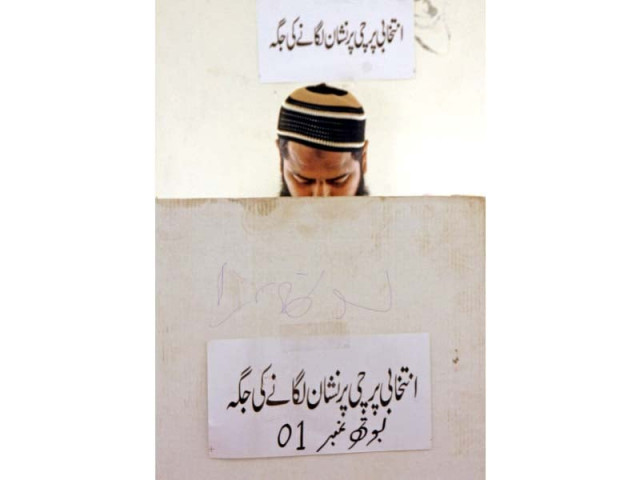 انتخابی پرچی پر نشان لگانے کی جگہ
انتخابی پرچی پر نشان لگانے کی جگہ
بوتھ نمبر 01